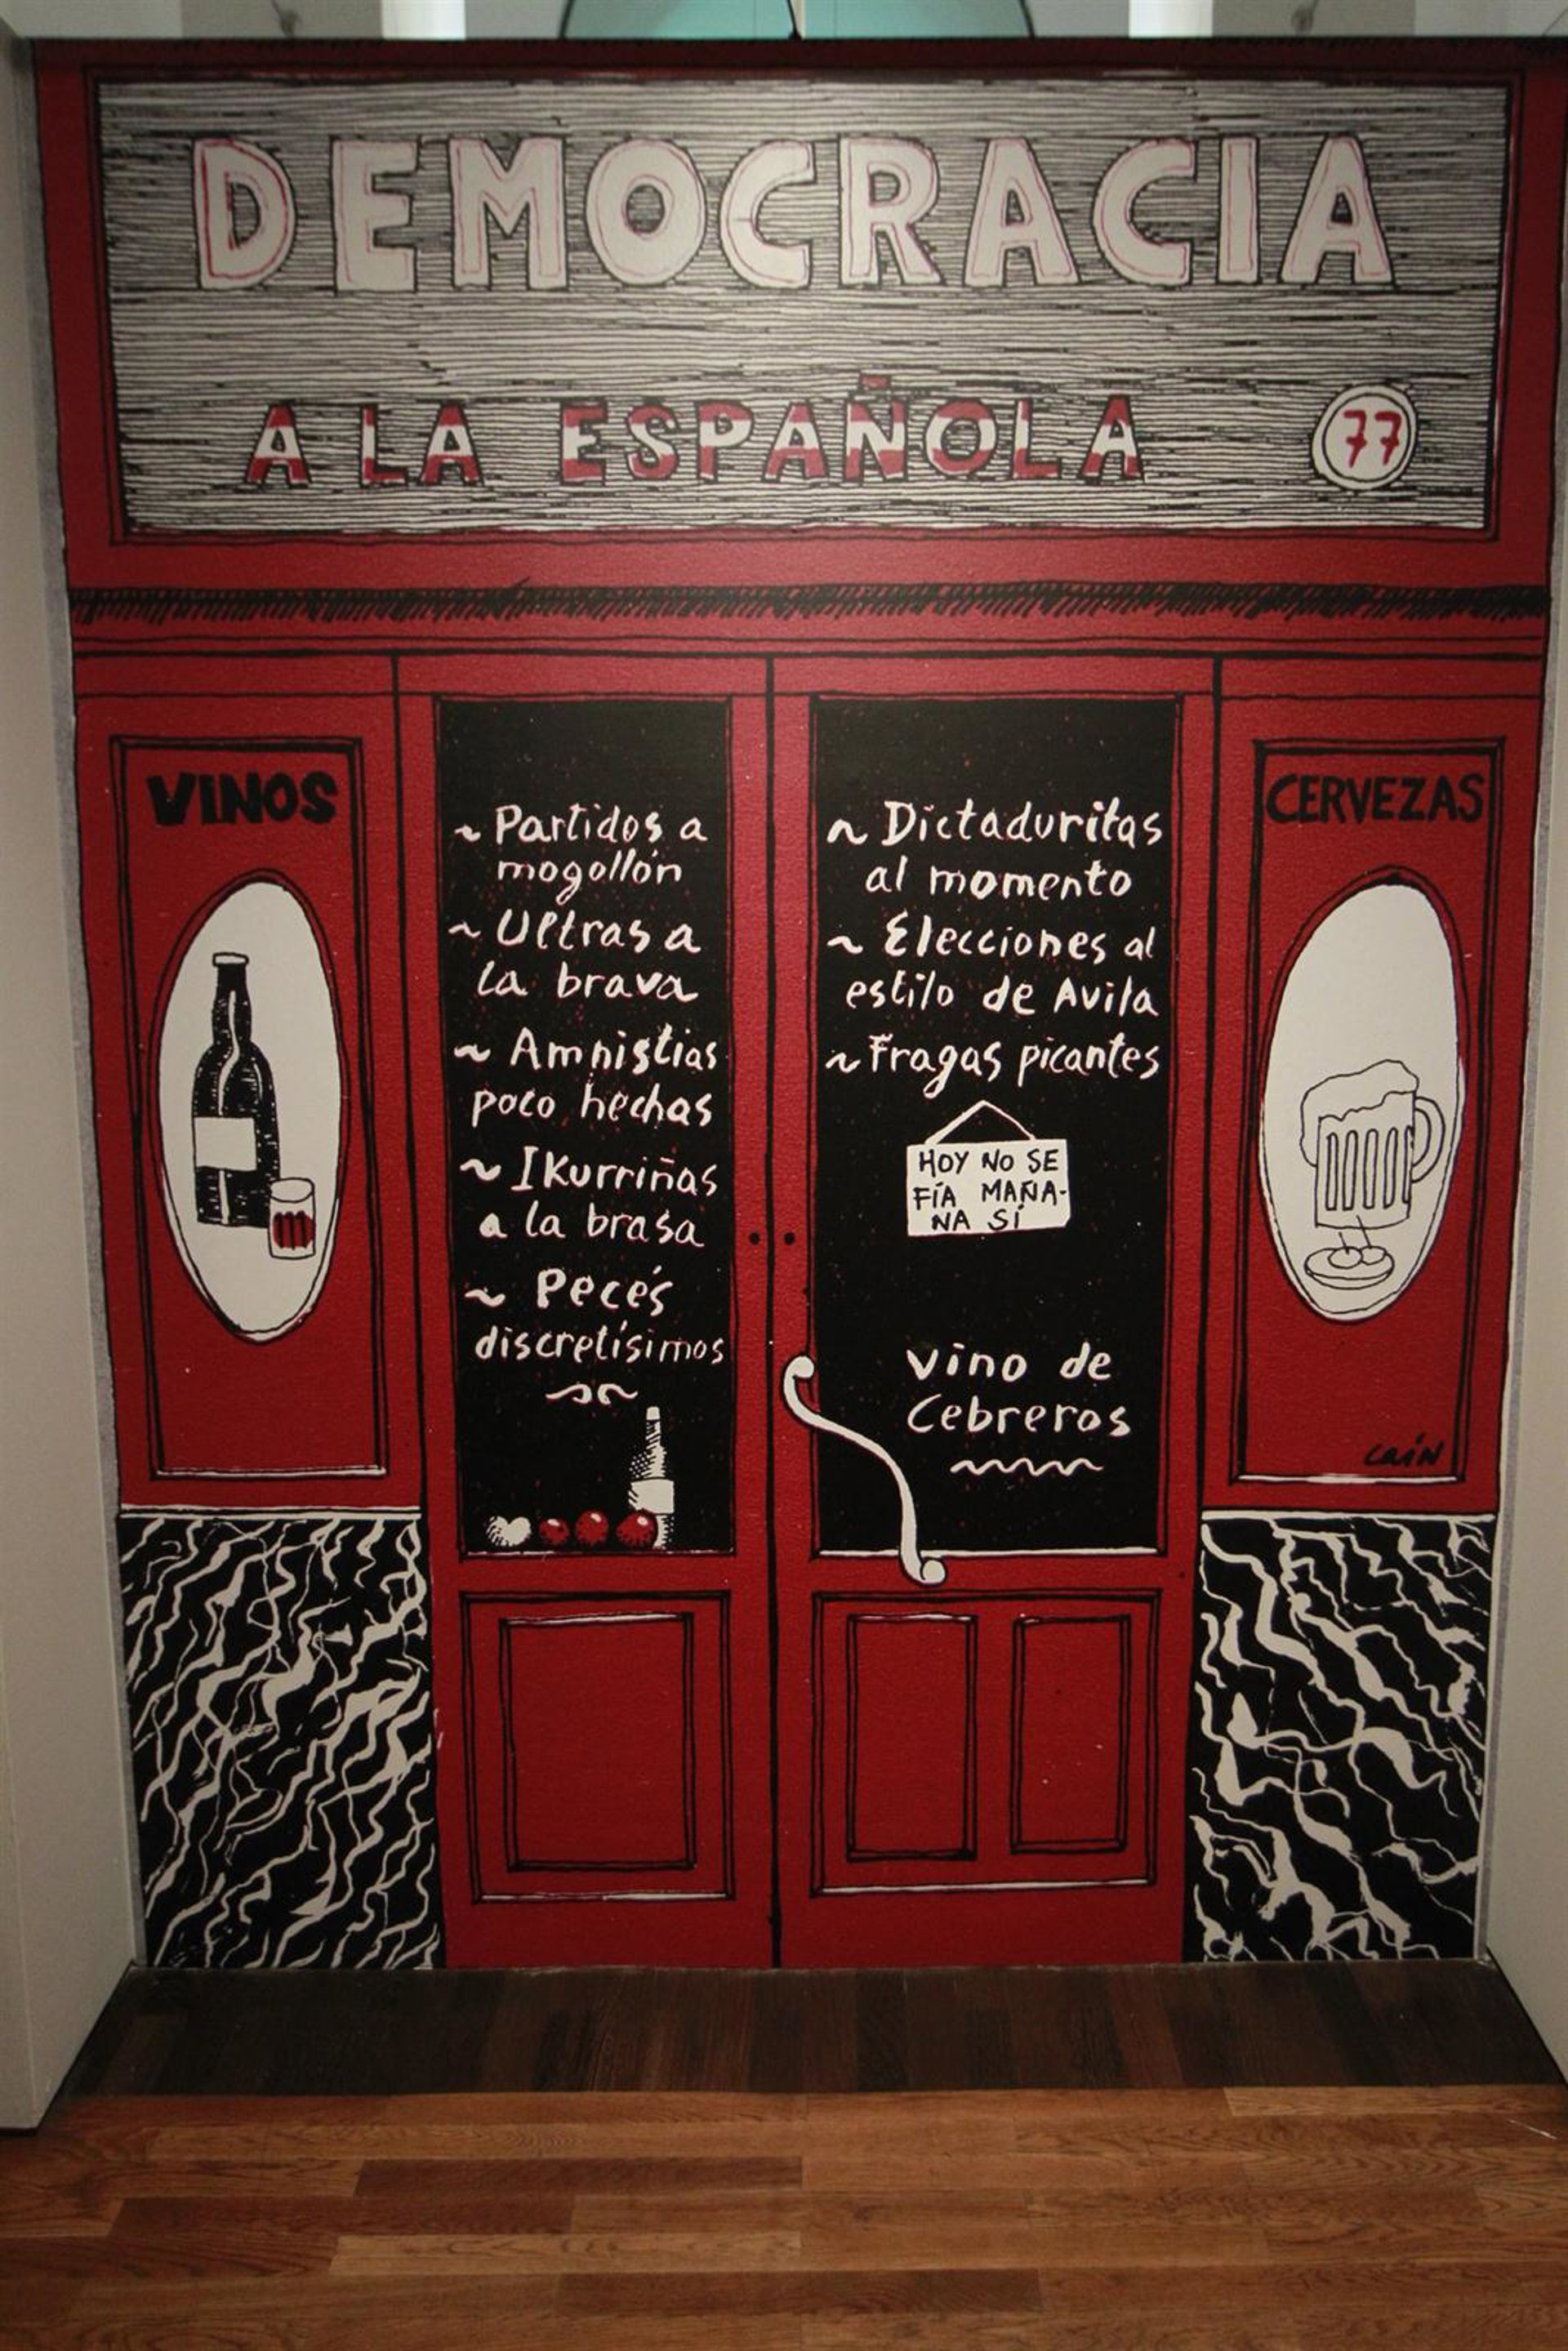 DEMOCRACIA
A LA ESPAÑOLA
77
VINOS
~ Partidos a
mogollón
~ Ultras a
la brava
~ Amnistias
poco hechas
~ Ikurriñas
a la brasa
~ Pecés
discretísimos
~ Dictaduritas
al momento
~ Elecciones al
estilo de Avila
~ Fragas picantes
HOY NO SE
FÍA MAÑA-
NA SÍ
vino de
Cebreros
CERVEZAS
CAÍN